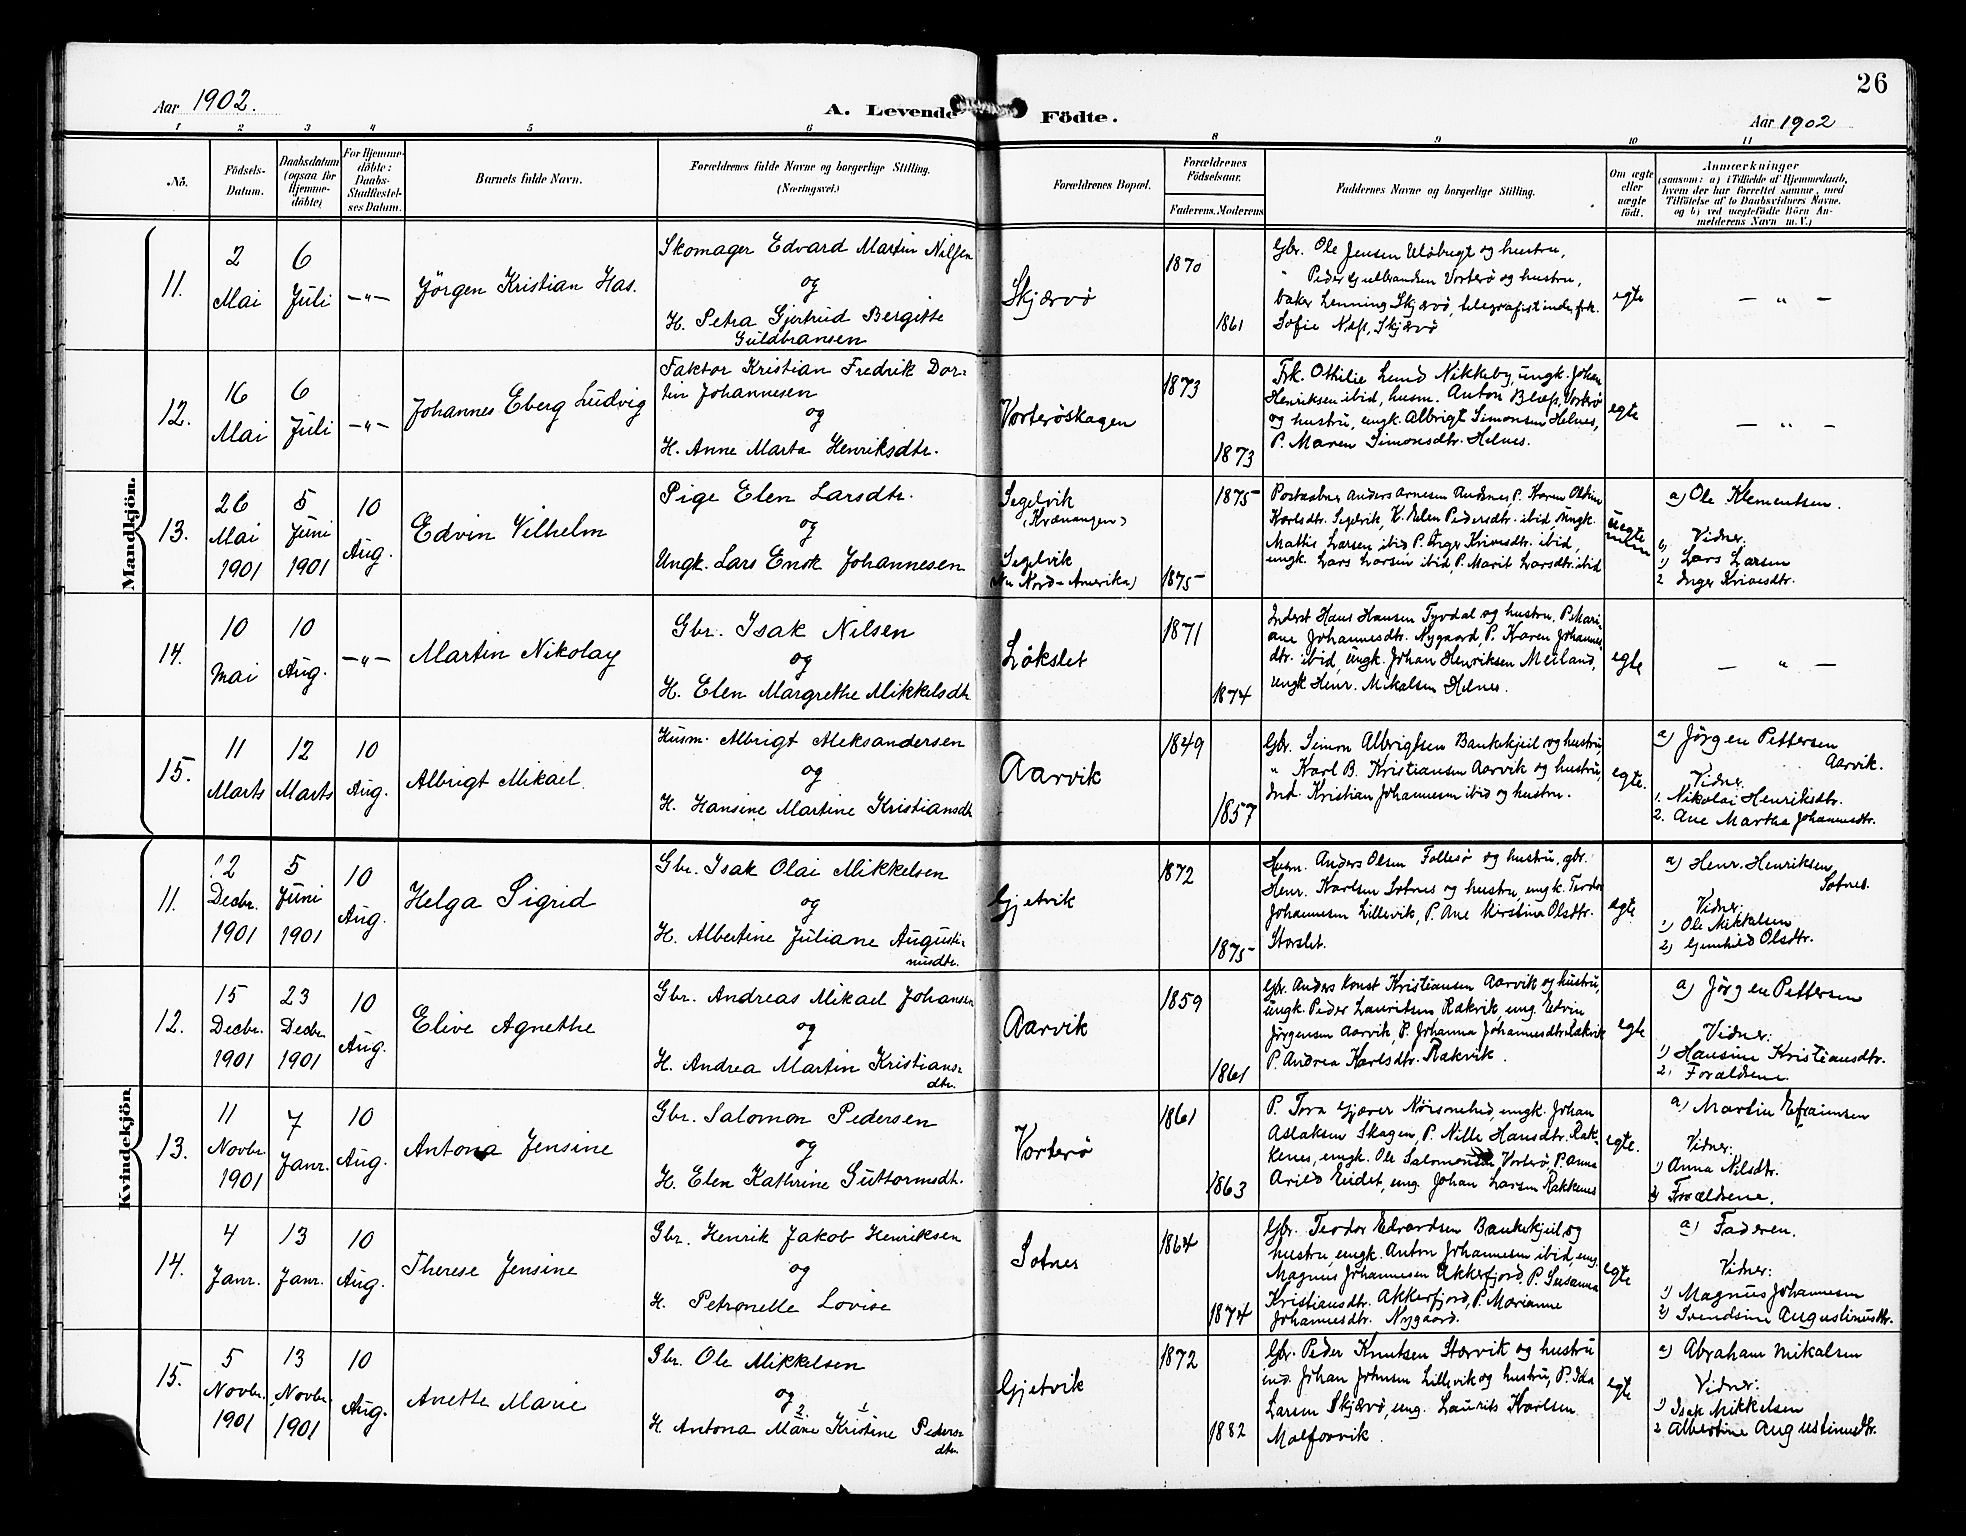 Aar 1902.
A. Levende Födte.
26
Aar 1902
1 2 3 4 5 6 8 9 10 11
No.
Födsels-Datum.
Daabsdatum (ogsaa för Hjemme-döbte)
For Hjemme-döbte: Daabs-Stadfæstel-ses Datum.
Barnets fulde Navn.
Forældrenes fulde Navne og borgerlige Stilling. (Næringsvei.)
Forældrenes Bopæl.
Forældrenes Födselsaar.
Faderens. Moderens
Faddernes Navne og borgerlige Stilling.
Om ægte eller uægte födt.
Anmærkninger
(saasom: a) i Tilfælde af Hjemmedaab,
hvem der har forrettet samme, med
Tilföielse af to Daabsvidners Navne.
og b) ved uægtefödte Börn An-
melderens Navn m. V.)
Mandkjön.
11.
2 Mai
6 Juli
—"—
Jörgen Kristian Has.
Skomager Edvard Martin Nilsen
og
H. Petra Gjertrud Bergitte
Guldbransen
Skjærvö
1870
1861
Gbr. Ole Jensen Ulöbugt og hustru,
" Peder Gulbrandsen Vorterö og hustru,
baker Lenning Skjærvö, telegrafistinde frk.
Sofie Næss, Skjærvö
egte
— " —
12.
16 Mai
6 Juli
—"—
Johannes Eberg Ludvig
Faktor Kristian Fredrik Dor-
tin Johannesen
og
H. Anne Marta Henriksdtr.
Vorteröskagen
1873
1873
Frk. Othilie Lund Nikkeby, ungk. Johan
Henriksen ibid, husm. Anton Vorterö
og hustru, ungk. Albrigt Simonsen Helnes,
P. Maren Simonsdtr. Helnes.
egte
— " —
13.
26 Mai 1901
5 Juni 1901
10 Aug.
Edvin Vilhelm
Pige Elen Larsdtr.
og
Ungk. Lars Enok Johannesen
Segelvik
(Kvænangen)
Segelvik
(Nu Nord-Amerika)
1875
1875
Postaabner Anders Arnesen P. Karen
Karlsdtr. Segelvik, K. Elen Pedersdtr. ibid, ungk.
Mattis Larsen ibid P. Inger ibid,
ungk. Lars Larsen ibid, P. Marit Larsdtr. ibid
uegte
a) Ole Klementsen.
Vidner:
1) Lars Larsen
2 Inger
14.
10 Mai
10 Aug.
—"—
Martin Nikolay
Gbr. Isak Nilsen
og
H. Elen Margrethe Mikkelsdtr
Lökslet
1871
1874
Inderst Hans Hansen Tyvdal og hustru, P. Mari-
ane Johannesdtr. Nygaard, P. Karen Johannes
dtr. ibid, ungk. Johan Henriksen Meiland,
ungk Henr. Mikalsen Helnes.
egte
— " —
15.
11 Marts
12 Marts
10 Aug.
Albrigt Mikael.
Husm. Albrigt Aleksandersen
og
H. Hansine Martine Kristiansdtr
Aarvik
1849
1857
Gbr. Simon Albrigtsen Bankekjeil og hustru,
" Karl B. Kristiansen Aarvik og hustru,
Ind. Kristian Johannesen ibid og hustru.
egte.
a) Jörgen Pettersen
Aarvik.
Vidner.
1. Nikolai Henriksdtr.
2. Ane Martha Johannesdtr.
Kvindekjön
11.
12 Decbr. 1901
5 Juni 1901
10 Aug.
Helga Sigrid
Gbr. Isak Olai Mikkelsen
og
H. Albertine Juliane Augusti-
nusdtr.
Gjetvik
1872
1875
Husm. Anders Olsen Follesö og hustru, gbr.
Henr. Karlsen Sotnes og hustru, ungk. Teodor
Johannesen Lillevik, P. Ane Kirstina Olsdtr.
Storslet.
egte
a) Henr. Henriksen
Sotnes.
Vidner:
1) Ole Mikkelsen
2) Gunhild Olsdtr.
12.
15 Decbr. 1901
23 Decbr 1901
10 Aug.
Elive Agnethe
Gbr. Andreas Mikael Johansen
og
H. Andrea Martin Kristians-
dtr.
Aarvik
1859
1861
Gbr. Anders Konst Kristiansen Aarvik og hustru,
ungk. Peder Lauritsen Rakvik, ung. Edvin
Jörgensen Aarvik, P. Johanna Johannesdtr. Rakvik
P. Andrea Karlsdtr. Rakvik.
egte
a) Jörgen Pettersen
Vidner:
1) Hansine Kristiansdtr.
2, Forældrene.
13.
11 Novbr. 1901
7 Janr.
10 Aug.
Antona Jensine
Gbr. Salomon Pedersen
og
H. Elen Kathrine Guttormsdtr.
Vorterö
1861
1863
P. Tora Gjæver ungk. Johan
Aslaksen Skagen, P. Nille Hansdtr. Rak-
kenes, ungk. Ole Salomonsen Vorterö, P. Anna
Arild Eidet, ung. Johan Larsen Rakkenes
egte.
a) Martin Efraimsen
Vidner:
1) Anna Nilsdtr.
2) Forældrene.
14.
4 Janr.
13 Janr.
10 Aug.
Therese Jensine
Gbr. Henrik Jakob Henriksen
og
H. Petronelle Lovise
Sotnes
1864
1874
Gbr. Teodor Edvardsen Bankekjeil og
hustru, ungk. Anton Johannesen ibid, ung.
Magnus Johannesen Akkerfjord, P. Susanna
Kristiansdtr. Akkerfjord, P. Marianne
Johannesdtr. Nygaard.
egte
a) Faderen.
Vidner:
1) Magnus Johannesen
2) Svendsine Augustinusdtr.
15.
5 Novbr. 1901
13 Novbr. 1901
10 Aug.
Anette Marie
Gbr. Ole Mikkelsen
og
2 1
H Antona Marie Kristine Peders-
dtr.
Gjetvik
1872
1882
Gbr. Peder Knutsen Storvik og hustru
ind. Johan Johnsen Lillevik og hustru, P. Ida
Larsen Skjærvö, ung. Laurits Karlsen
Malfosvik.
egte
a) Abraham Mikalsen
Vidner:
1) Isak Mikkelsen
2 Albertine Augustinusdtr.